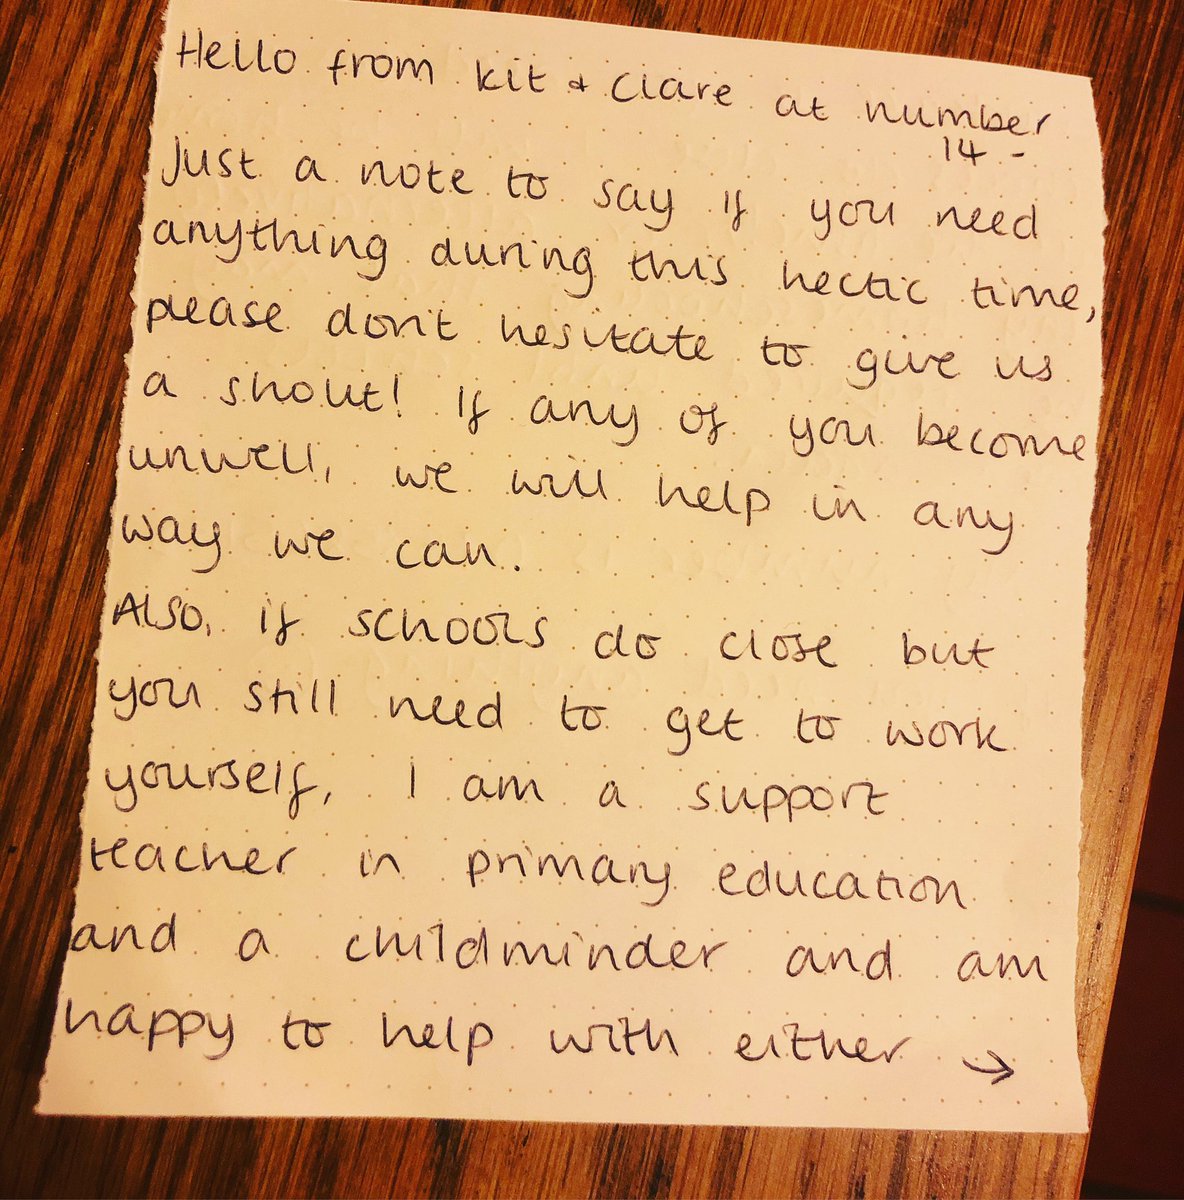 Hello from Kit & Clare at number
14 -
Just a note to say if you need
anything during this hectic time,
please don't hesitate to give us
a shout! If any of you become
unwell, we will help in any
way we can.
Also, if schools do close but
you still need to get to work
yourself, I am a support
teacher in primary education
and a childminder and am
happy to help with either →